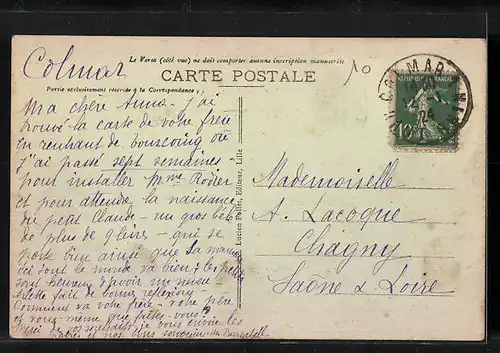 Colmar
Le Verso (côté vue) ne doit comporter aucune inscription manuscrite
CARTE POSTALE
Partie exclusivement réservée à la Correspondance
10
COLMAR
REPUBLIQUE FRANÇAISE
10
24
Ma chère Anna - j'ai
trouvé la carte de votre frère
en rentrant de Tourcoing où
j'ai passé sept semaines
pour installer Mme Rodier
et pour attendre la naissance
du petit Claude - un gros bébé
de plus de 9 livres - qui se
porte bien ainsi que sa maman
Ici tout le monde va bien & les petits
sont heureux d'avoir un
fait de bonnes
Comment va votre frère - votre père
et vous-même que faites-vous
je vous envoie les
et nos bons souvenirs
Lucien Pollet, Editeur, Lille
Mademoiselle
A. Lacoque
Chagny
Saône & Loire